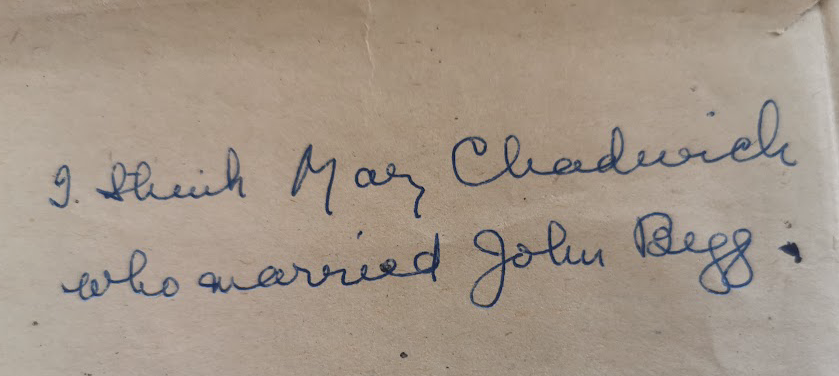 I. think Mary Chadwick
who married John Begg.